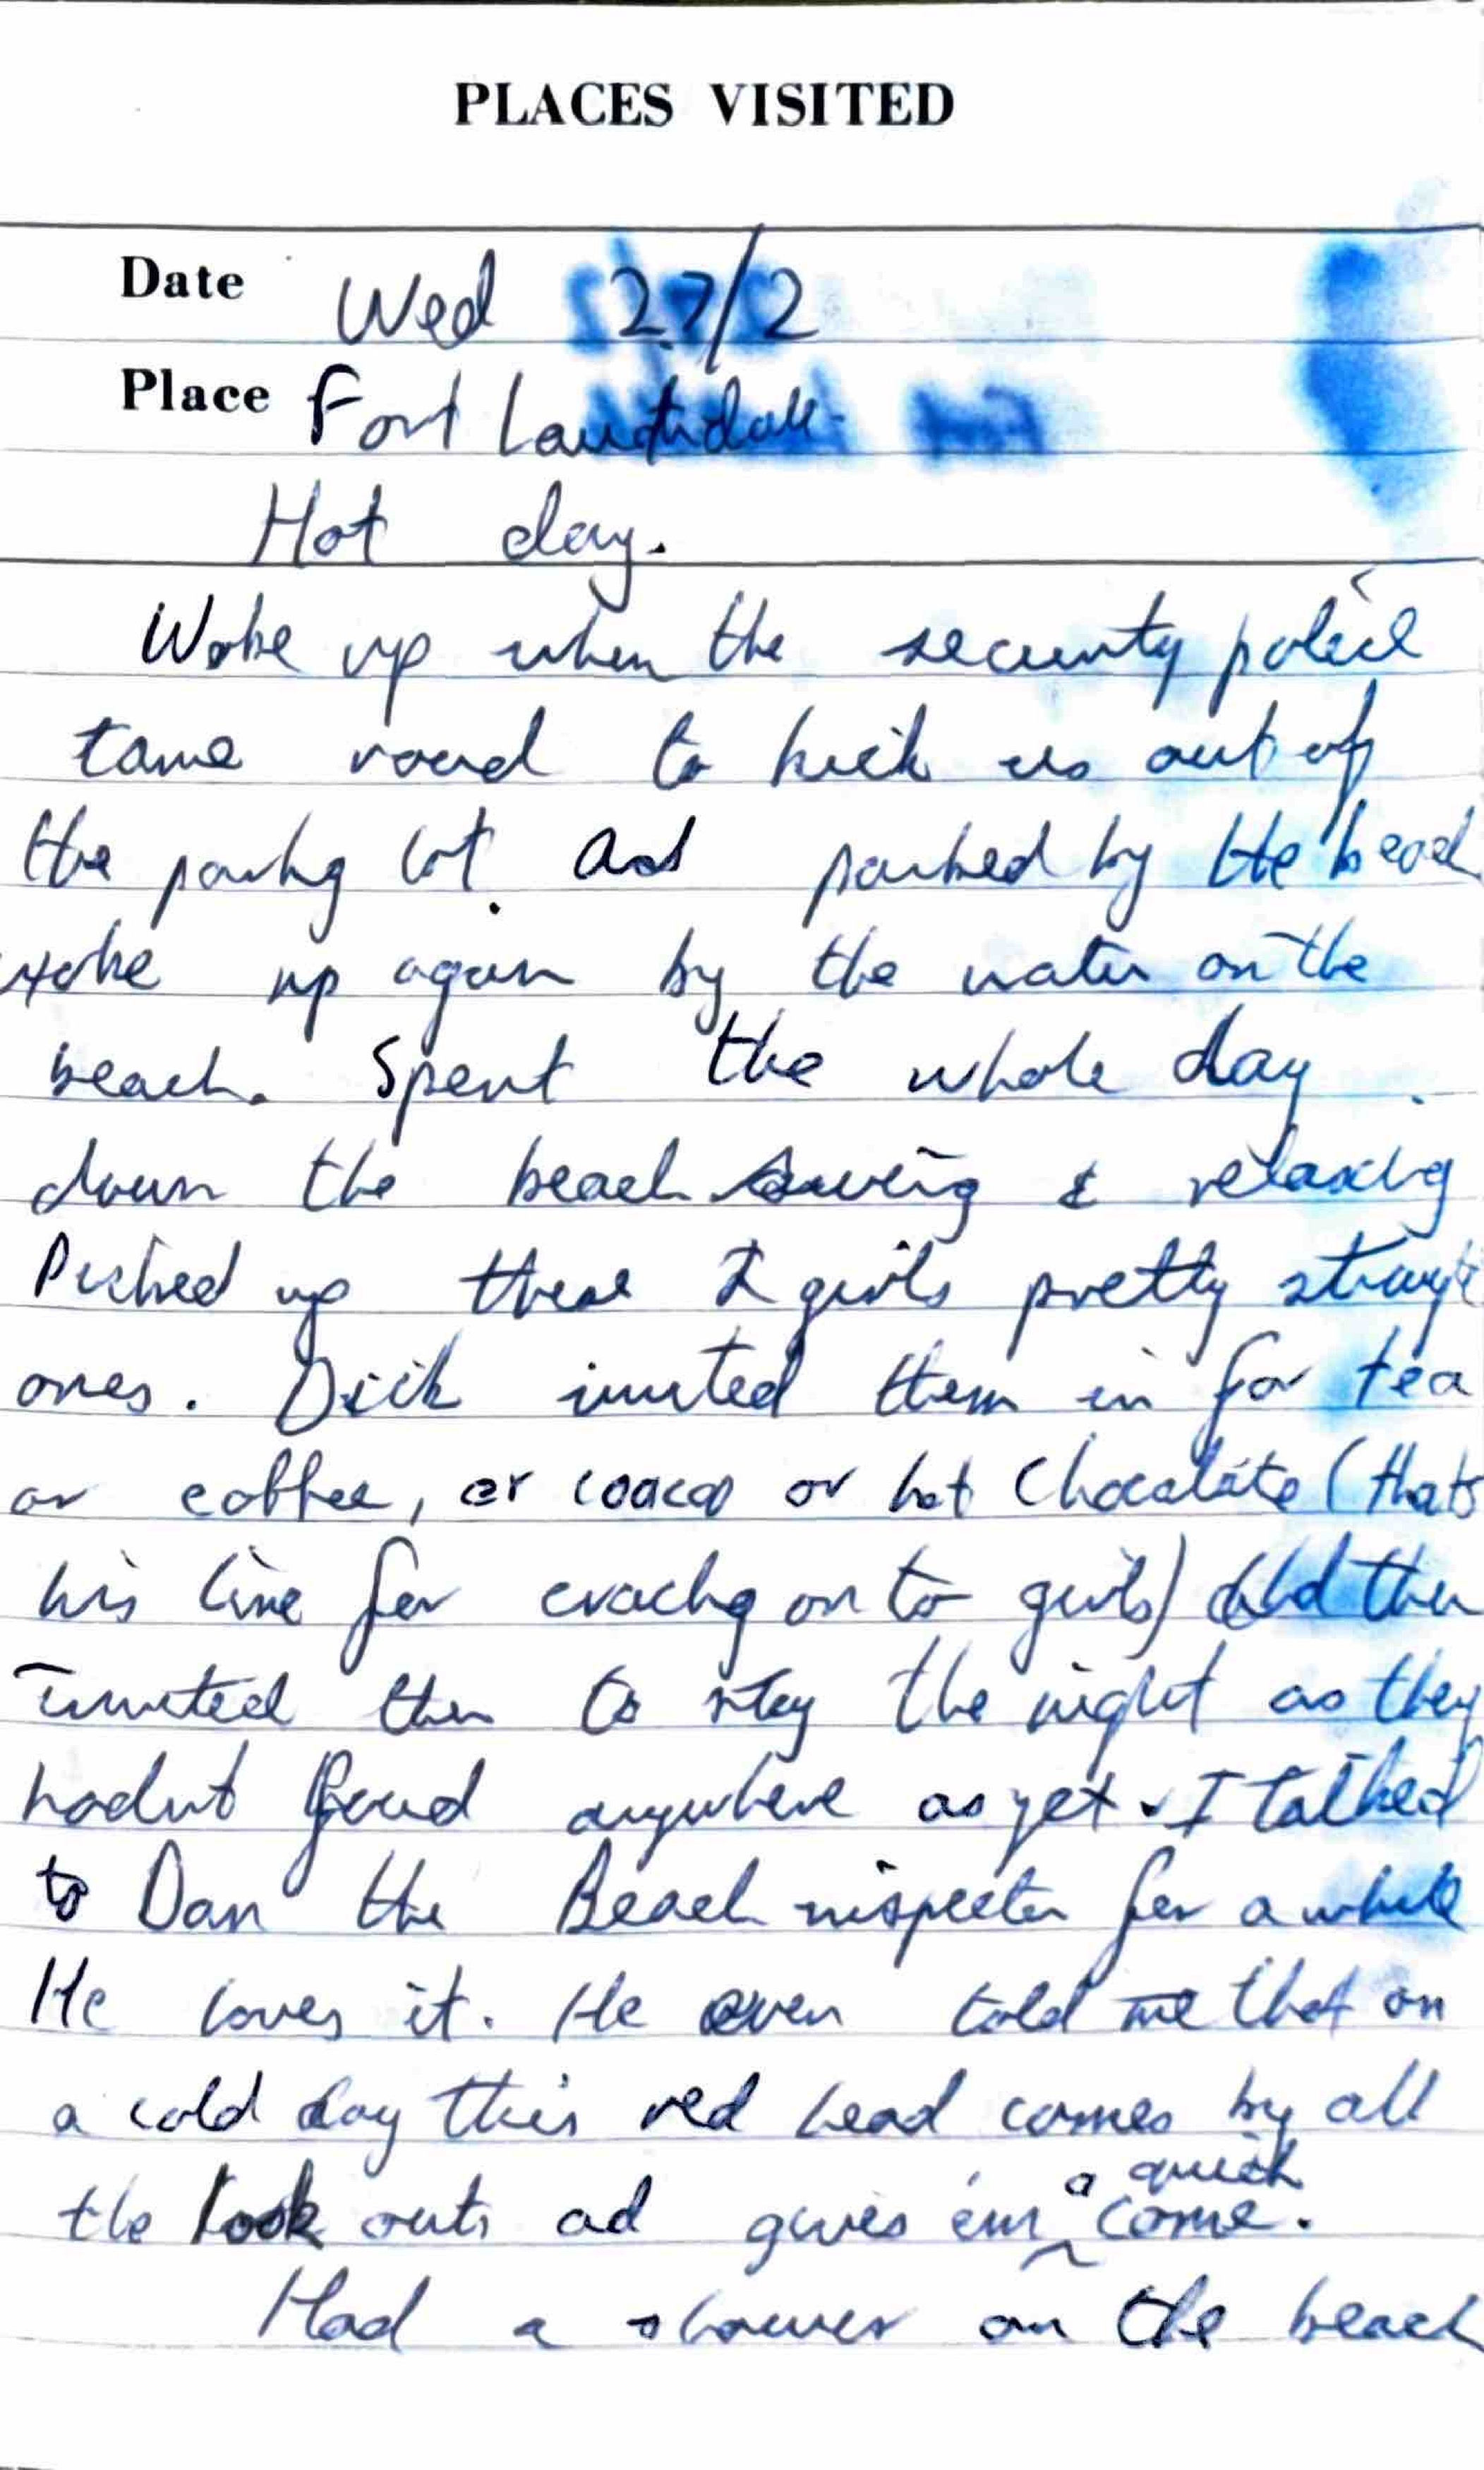 PLACES VISITED
Date Wed 27/2
Place Fort Lautdale
Hot day.
Woke up when the security police
came roud to kick us out of
the parkg lot. And parked by the beach
woke up again by the water on the
beach. Spent the whole day
down the beach & relaxing
Picked up these 2 girls pretty straight
ones. Dick invited them in for tea
or coffee, or coacao or hot chocolate (thats
his line for crackg on to girls) And then
invited them to stay the night as they
hadnt found anywhere as yet. I talked
to Dan the Beach inspecter for a while
He loves it. He even told me that on
a cold day this red head comes by all
the look outs ad gives em a quick come.
Had a shower on the beach